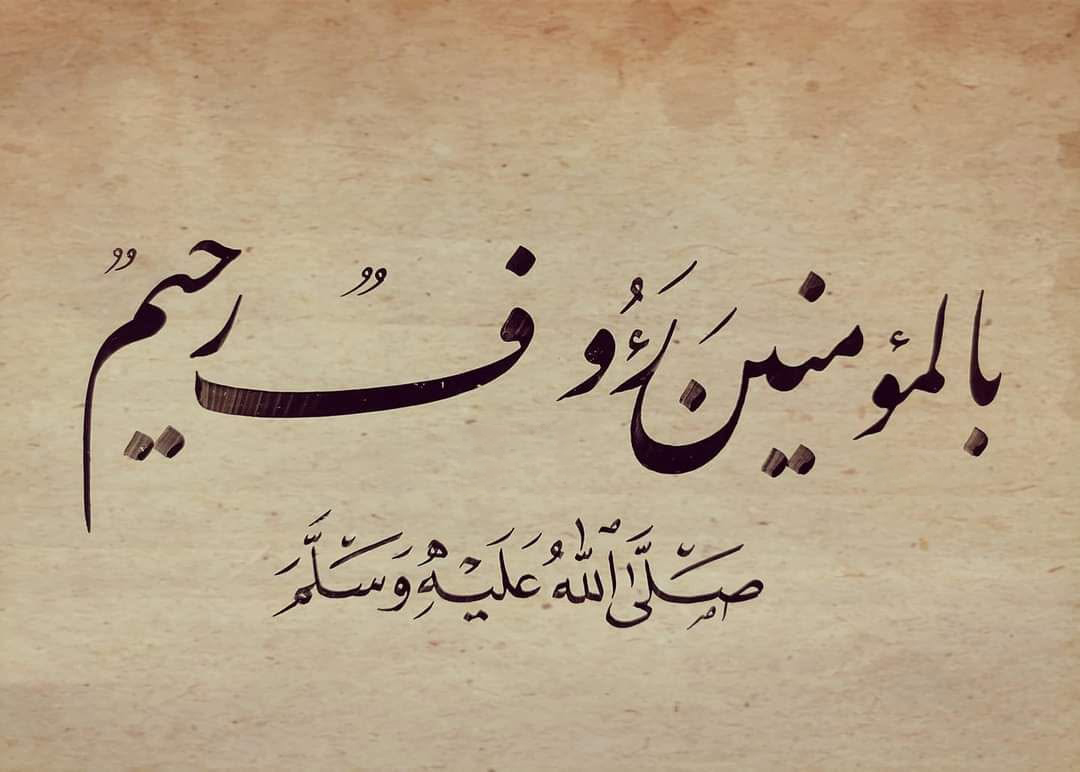 بالمؤمنينَ رَءُوفٌ رحيمٌ
صَلَّى اللهُ عَلَيْهِ وَسَلَّمَ